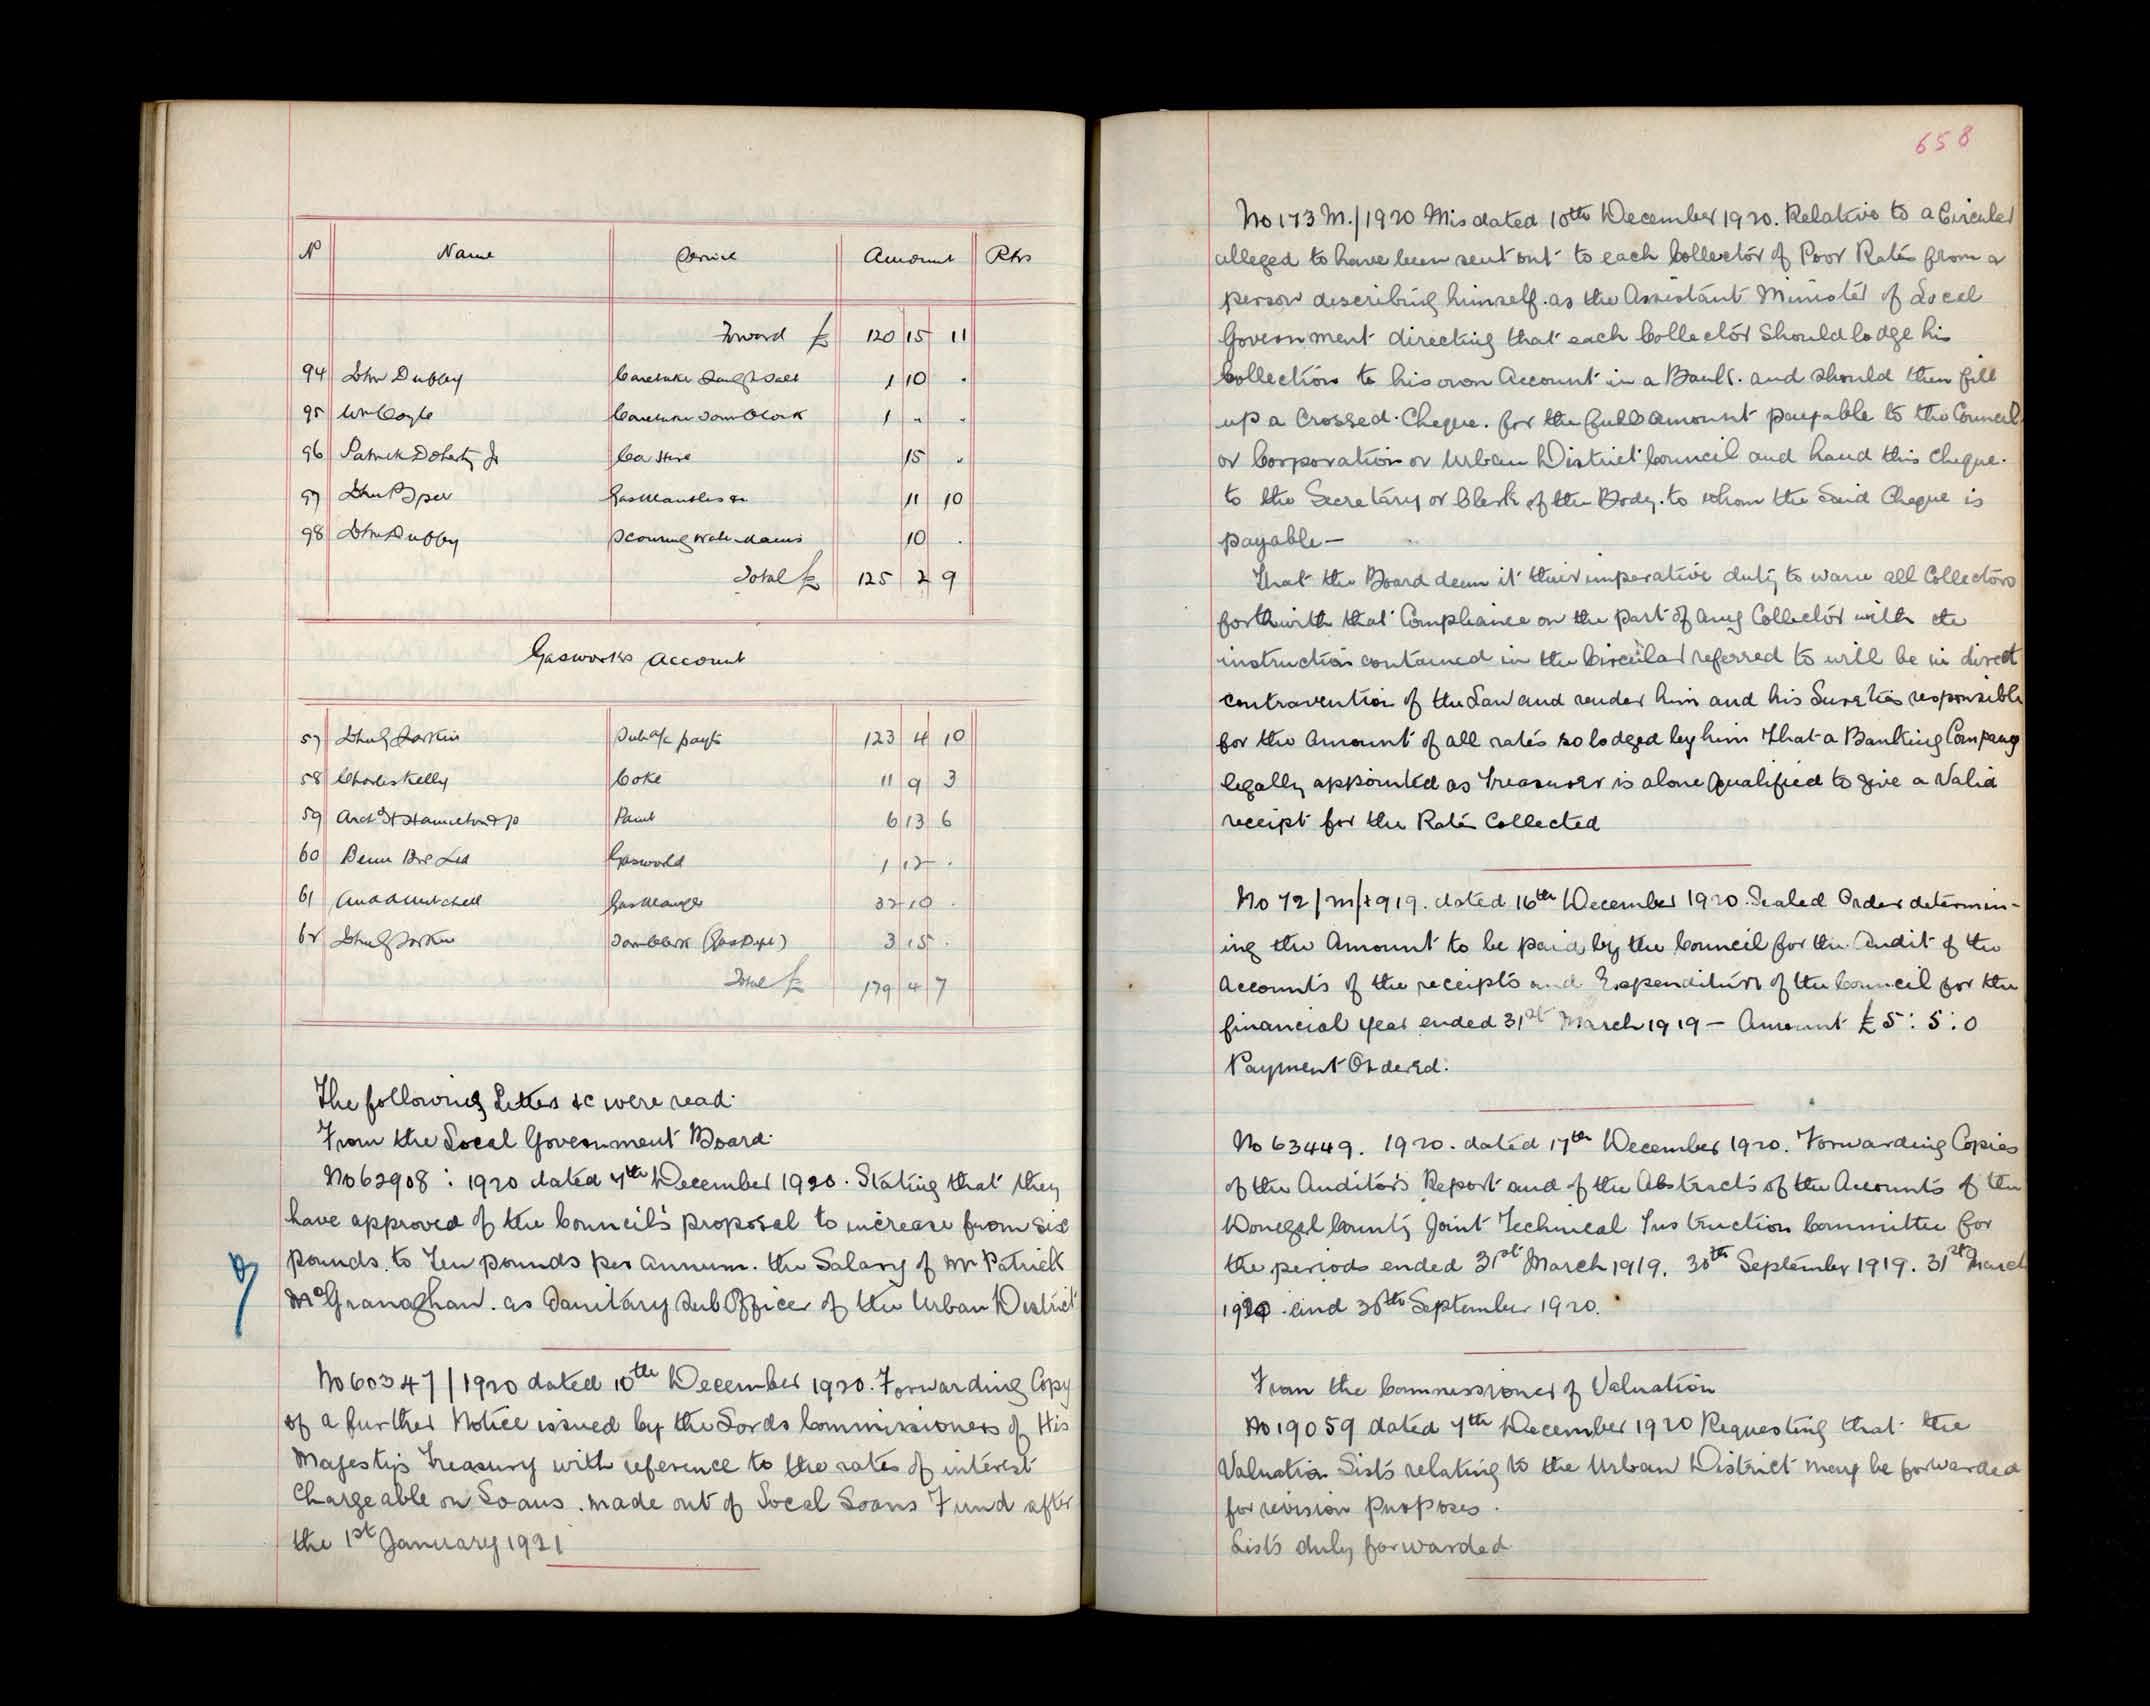 No Name Service Amount Rks
Forward £ 120 15 11
94 John Dubby Caretaker 1 10 .
95 Wm Coyle Caretaker Town Clock 1 . .
96 Patrick Doherty Jr 15 .
97 Gasmantles &c 11 10
98 John Dubby Scouring 10 .
Total £ 125 2 9
Gasworks Account
57 John G Larkin Sub a/c payts 123 4 10
58 Charles Kelly Coke 11 9 3
59 Archd H Hamilton & Co Paint 6 13 6
60 Benn Bros Ltd Gasworld 1 12 .
61 Mitchell Gas Manager 32 10 .
62 John G Larkin Town Clerk (Gas Dept) 3 15 .
Total £ 179 4 7
The following Letters &c were read.
From the Local Government Board.
No 62908 : 1920 dated 7th December 1920. Stating that they
have approved of the Council's proposal to increase from six
pounds. to Ten pounds per annum. the Salary of Mr Patrick
McGranaghan. as Sanitary Sub Officer of the Urban District
No 60347/1920 dated 10th December 1920. Forwarding Copy
of a further Notice issued by the Lords Commissioners of His
Majesty's Treasury with reference to the rates of interest
Chargeable on Loans. made out of Local Loans Fund after
the 1st January 1921
658
No 173 M./1920 Mis dated 10th December 1920. Relative to a Circular
alleged to have been sent out to each Collector of Poor Rates from a
person describing himself. as the Assistant Minister of Local
Government directing that each Collector should lodge his
Collection to his own Account in a Bank. and should then fill
up a Crossed. Cheque. for the full amount payable to the Council
or Corporation or Urban District Council and hand this Cheque.
to the Secretary or Clerk of the Body. to whom the said Cheque is
payable —
That the Board deem it their imperative duty to warn all Collectors
forthwith that Compliance on the part of any Collector with the
instruction contained in the Circular referred to will be in direct
contravention of the Law and render him and his Sureties responsible
for the Amount of all rates so lodged by him That a Banking Company
legally appointed as Treasurer is alone qualified to give a Valid
receipt for the Rates Collected
No 72/M/1919. dated 16th December 1920. Sealed Order determin-
ing the Amount to be paid by the Council for the Audit of the
Accounts of the receipts and Expenditure of the Council for the
financial year ended 31st March 1919 — Amount £5 : 5 : 0
Payment Ordered.
No 63449. 1920. dated 17th December 1920. Forwarding Copies
of the Auditor's Report and of the Abstracts of the Accounts of the
Donegal County Joint Technical Instruction Committee for
the periods ended 31st March 1919. 30th September 1919. 31st March
1920 and 30th September 1920.
From the Commissioner of Valuation
No 19059 dated 7th December 1920 Requesting that the
Valuation Lists relating to the Urban District may be forwarded
for revision purposes.
Lists duly forwarded